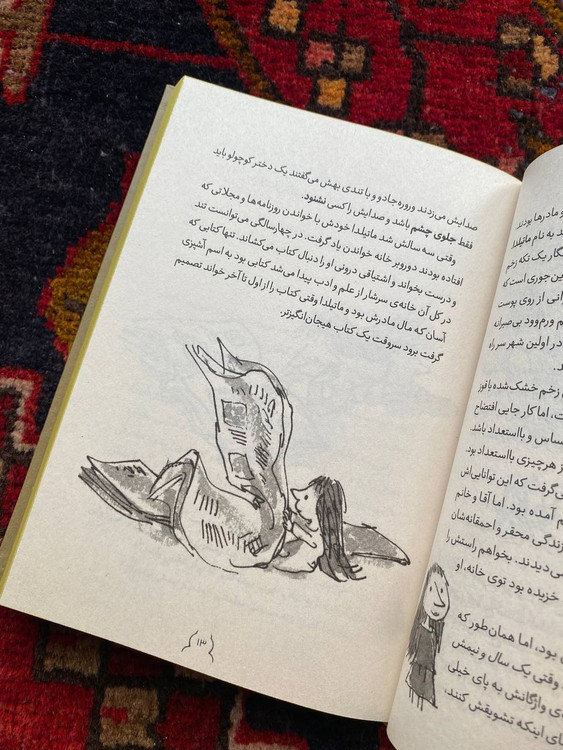 و مادرها بودند
به نام ماتیلدا
یک تکه زخم
جوری است که
از روی پوست
ورم‌وود بی‌صبرانه
در اولین شهر سر راه
زخم خشک‌شده یا قوز
اما کار جایی افتضاح
و بااستعداد باشد
هرچیزی بااستعداد بود.
که این توانایی‌اش
آمده بود. اما آقا و خانم
زندگی محقر و احمقانه‌شان
بخواهم راستش را
خزیده بود توی خانه، او
بود، اما همان‌طور که
وقتی یک سال و نیمش
واژگانش به پای خیلی
اینکه تشویقش کنند،
صدایش می‌زدند وروره‌جادو و با تندی بهش می‌گفتند یک دختر کوچولو باید
فقط جلوی چشم باشد و صدایش را کسی نشنود.
وقتی سه سالش شد ماتیلدا خودش با خواندن روزنامه‌ها و مجلاتی که
افتاده بودند دوروبر خانه خواندن یاد گرفت. در چهارسالگی می‌توانست تند
و درست بخواند و اشتیاقی درونی او را دنبال کتاب می‌کشاند. تنها کتابی که
در کل آن خانه‌ی سرشار از علم و ادب پیدا می‌شد کتابی بود به اسم آشپزی
آسان که مال مادرش بود و ماتیلدا وقتی کتاب را از اول تا آخر خواند تصمیم
گرفت برود سروقت یک کتاب هیجان‌انگیزتر.
۱۳